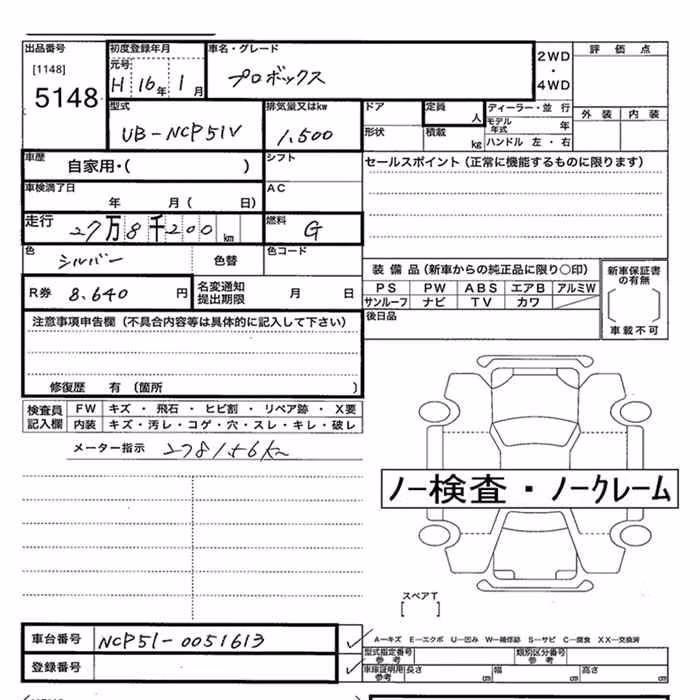 出品番号 初度登録年月 車名・グレード 評価点
[1148] 元号 2WD
5148 H 16年 1月 プロボックス ・
4WD
型式 排気量又はkw ドア 定員 ディーラー・並行 外装 内装
UB-NCP51V 1,500 人 モデル年式 年
形状 積載 kg ハンドル 左・右
車歴 自家用・( ) シフト セールスポイント (正常に機能するものに限ります)
車検満了日 AC
年 月( 日)
走行 27万8千200km 燃料 G
色 シルバー 色替 色コード
装備品 (新車からの純正品に限り○印) 新車保証書の有無
R券 8,640円 名変通知提出期限 月 日 PS PW ABS エアB アルミW
サンルーフ ナビ TV カワ
注意事項申告欄 (不具合内容等は具体的に記入して下さい) 後日品 車載不可
修復歴 有 (箇所 )
検査員 FW キズ・飛石・ヒビ割・リペア跡・X要
記入欄 内装 キズ・汚レ・コゲ・穴・スレ・キレ・破レ
メーター指示 278156km
ノー検査・ノークレーム
スペアT
[ ]
車台番号 NCP51-0051613
A―キズ E―エクボ U―凹み W―補修跡 S―サビ C―腐食 XX―交換済
型式指定番号 参考 類別区分番号 参考
登録番号 車庫証明用 参考 長さ cm 幅 cm 高さ cm